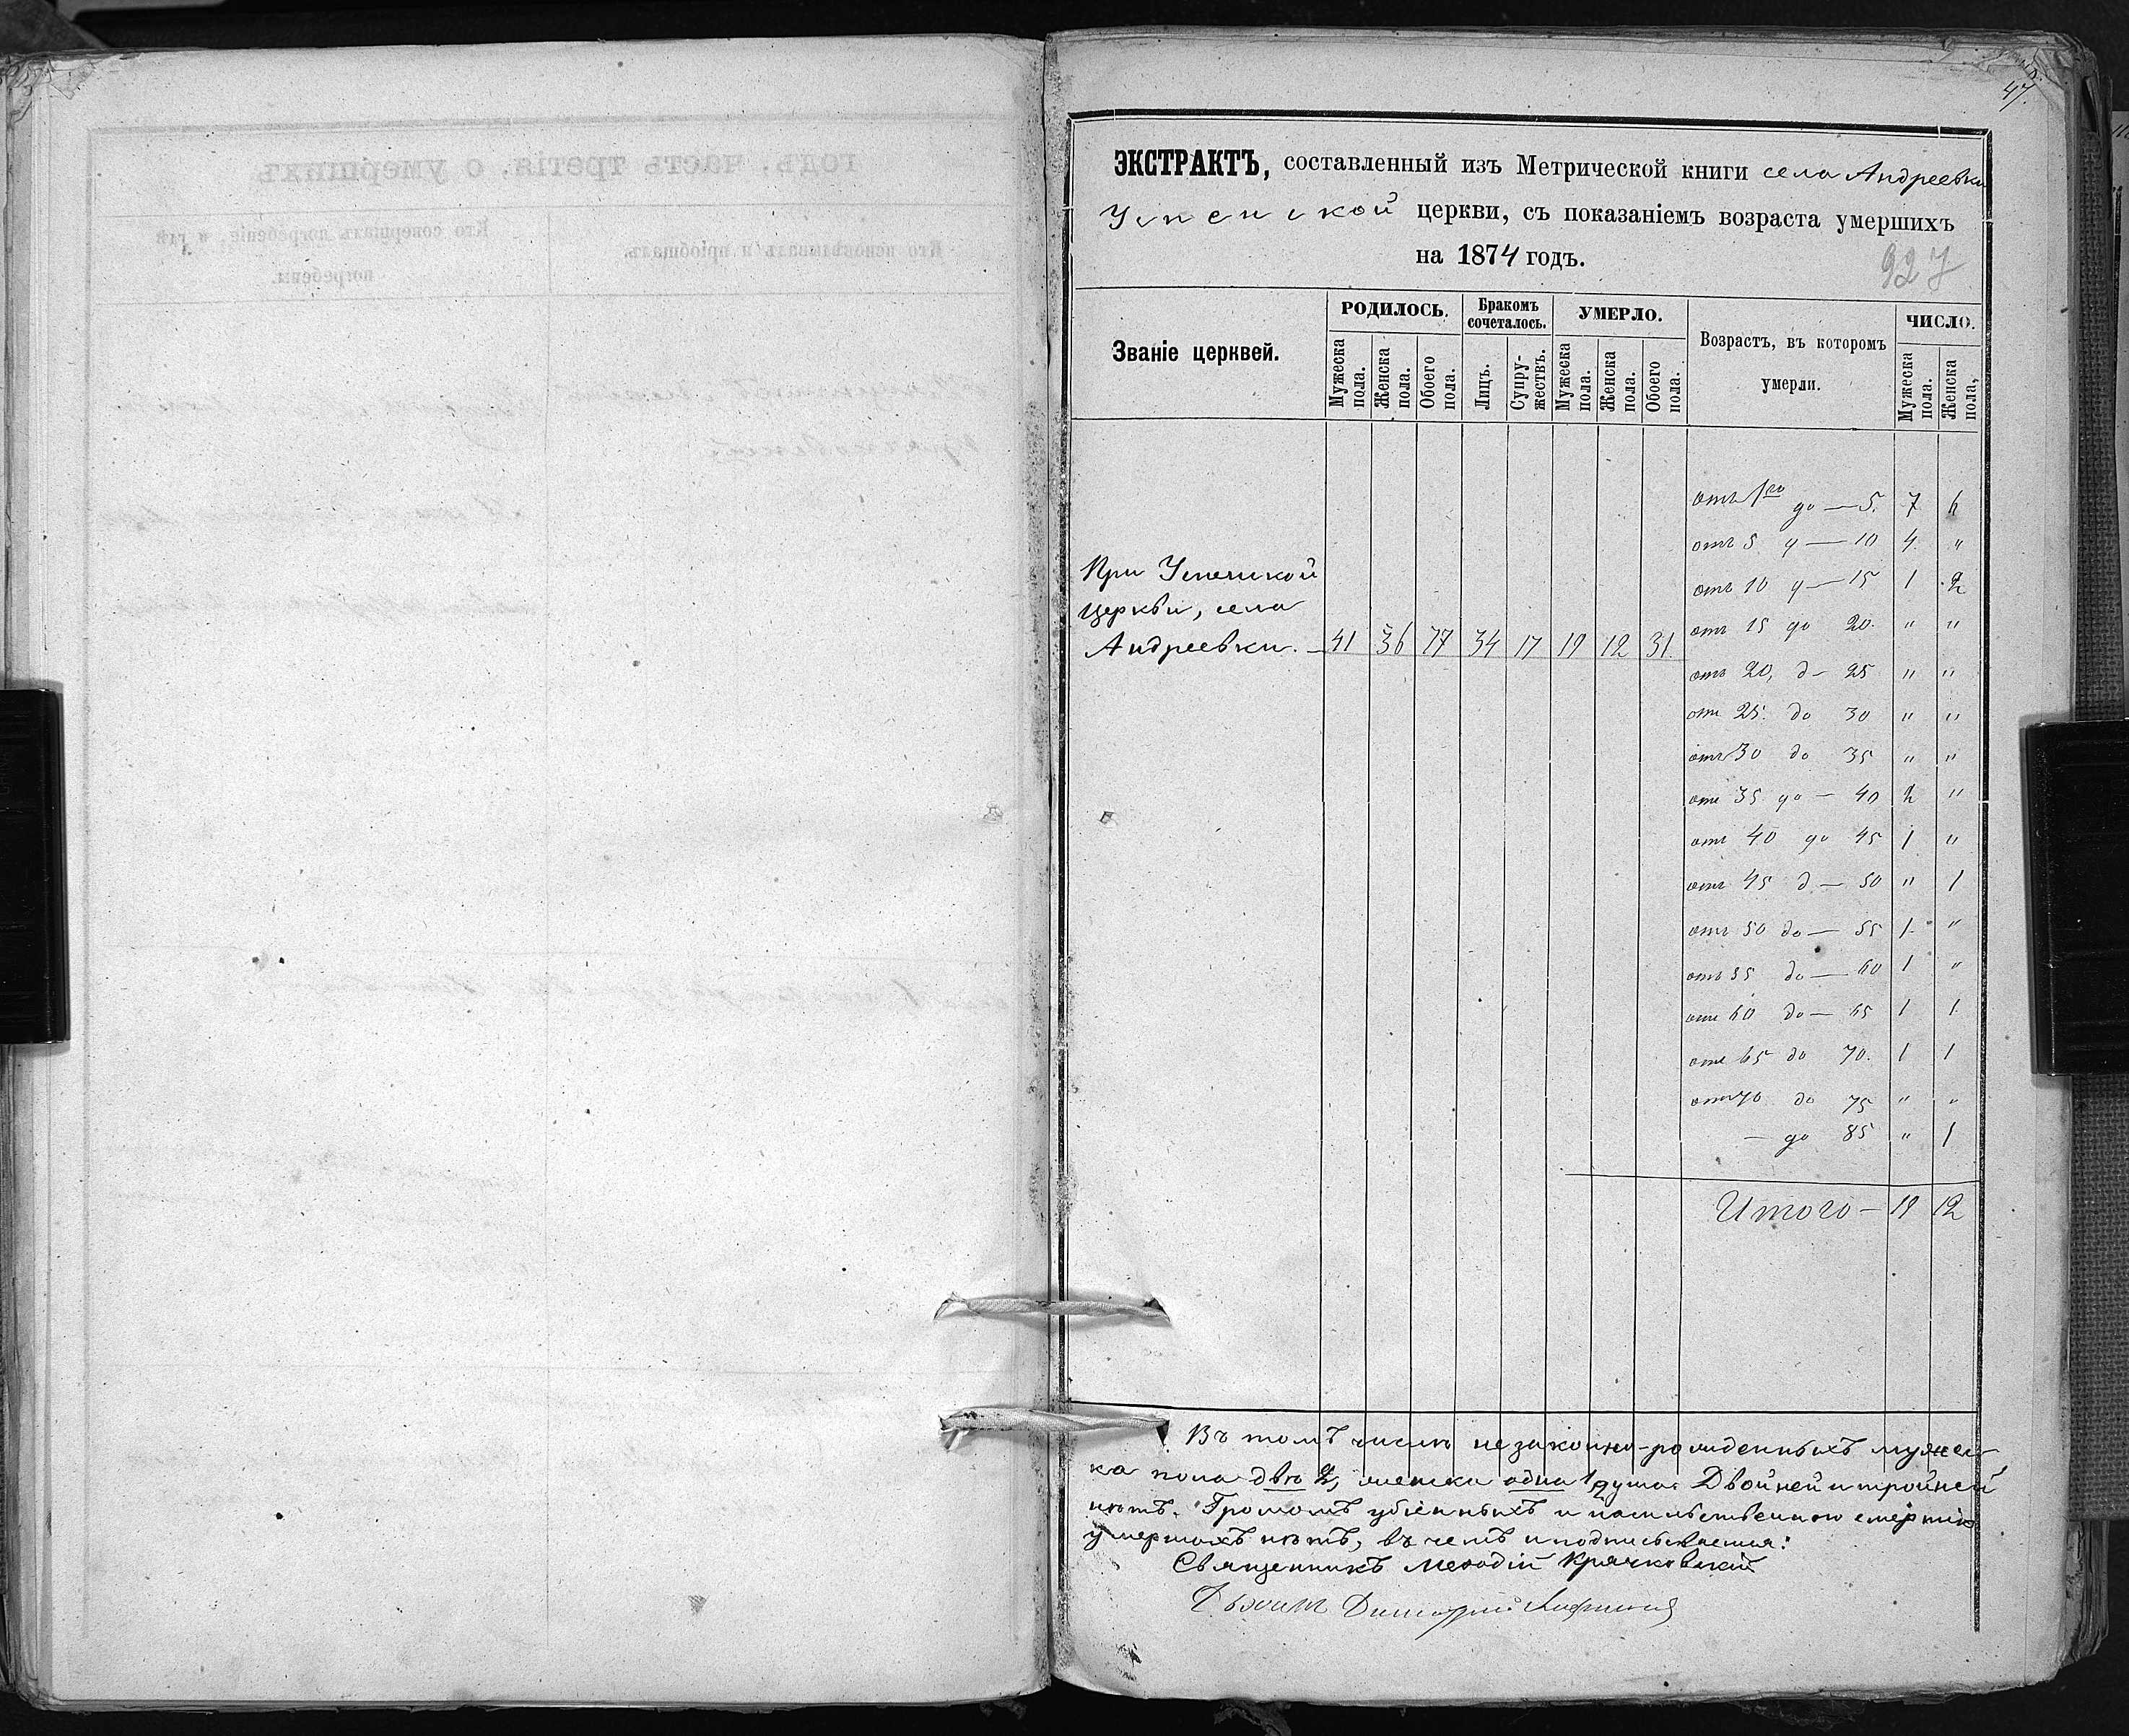 47.
ЭКСТРАКТЪ, составленный изъ Метрической книги села Андреевки
Успенской церкви, съ показаніемъ возраста умершихъ
на 1874 годъ.
927
Званіе церквей.
РОДИЛОСЬ.
Бракомъ сочеталось.
УМЕРЛО.
Возрастъ, въ которомъ умерли.
ЧИСЛО.
Мужеска пола.
Женска пола.
Обоего пола.
Лицъ.
Супружествъ.
Мужеска пола.
Женска пола.
Обоего пола.
Мужеска пола.
Женска пола,
отъ 1го до — 5. 7 6
отъ 5 д — 10 4 "
отъ 10 д — 15 1 2
При Успенской
церкви, села
Андреевки. — 41 36 77 34 17 19 12 31.
отъ 15 до 20. " "
отъ 20, д — 25 " "
отъ 25. до 30 " "
отъ 30 до 35 " "
отъ 35 до — 40 2 "
отъ 40 до 45 1 "
отъ 45 д — 50 " 1
отъ 50 до — 55 1 "
отъ 55 до — 60 1 "
отъ 60 до — 65 1 1
отъ 65 до 70. 1 1
отъ 70 до 75 " "
— до 85 " 1
Итого — 19 12
Въ томъ числѣ незаконно-рожденныхъ мужес-
ка пола двѣ 2, женска одна 1 душа. Двойней и тройней
нѣтъ. Громомъ убіенныхъ и насильственною смертію
умершихъ нѣтъ, въ чемъ и подписываемся:
Священникъ Меѳодій Крачковскій
Дьячокъ Димитрій
годъ. часть третія. о умершихъ
Кто исповѣдывалъ и пріобщалъ.
Кто совершалъ погребеніе, и гдѣ
погребены.